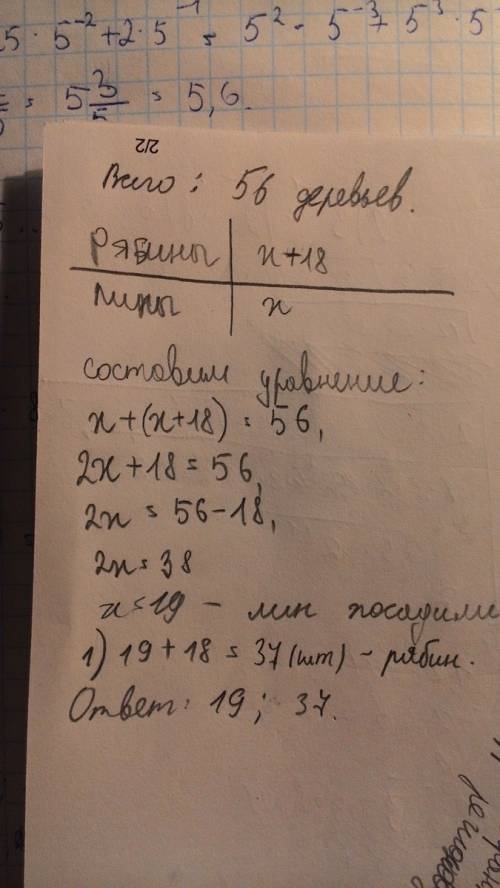 5 · 5⁻² + 2 · 5⁻¹ = 5² - 5⁻³ + 5³ · 5
= 5 3/5 = 5,6.
2/2
Всего: 56 деревьев.
Рябины | x+18
Липы | x
составим уравнение:
x+(x+18) = 56,
2x+18=56,
2x = 56-18,
2x=38
x=19 - лип посадили
1) 19+18=37(шт) - рябин.
Ответ: 19; 37.